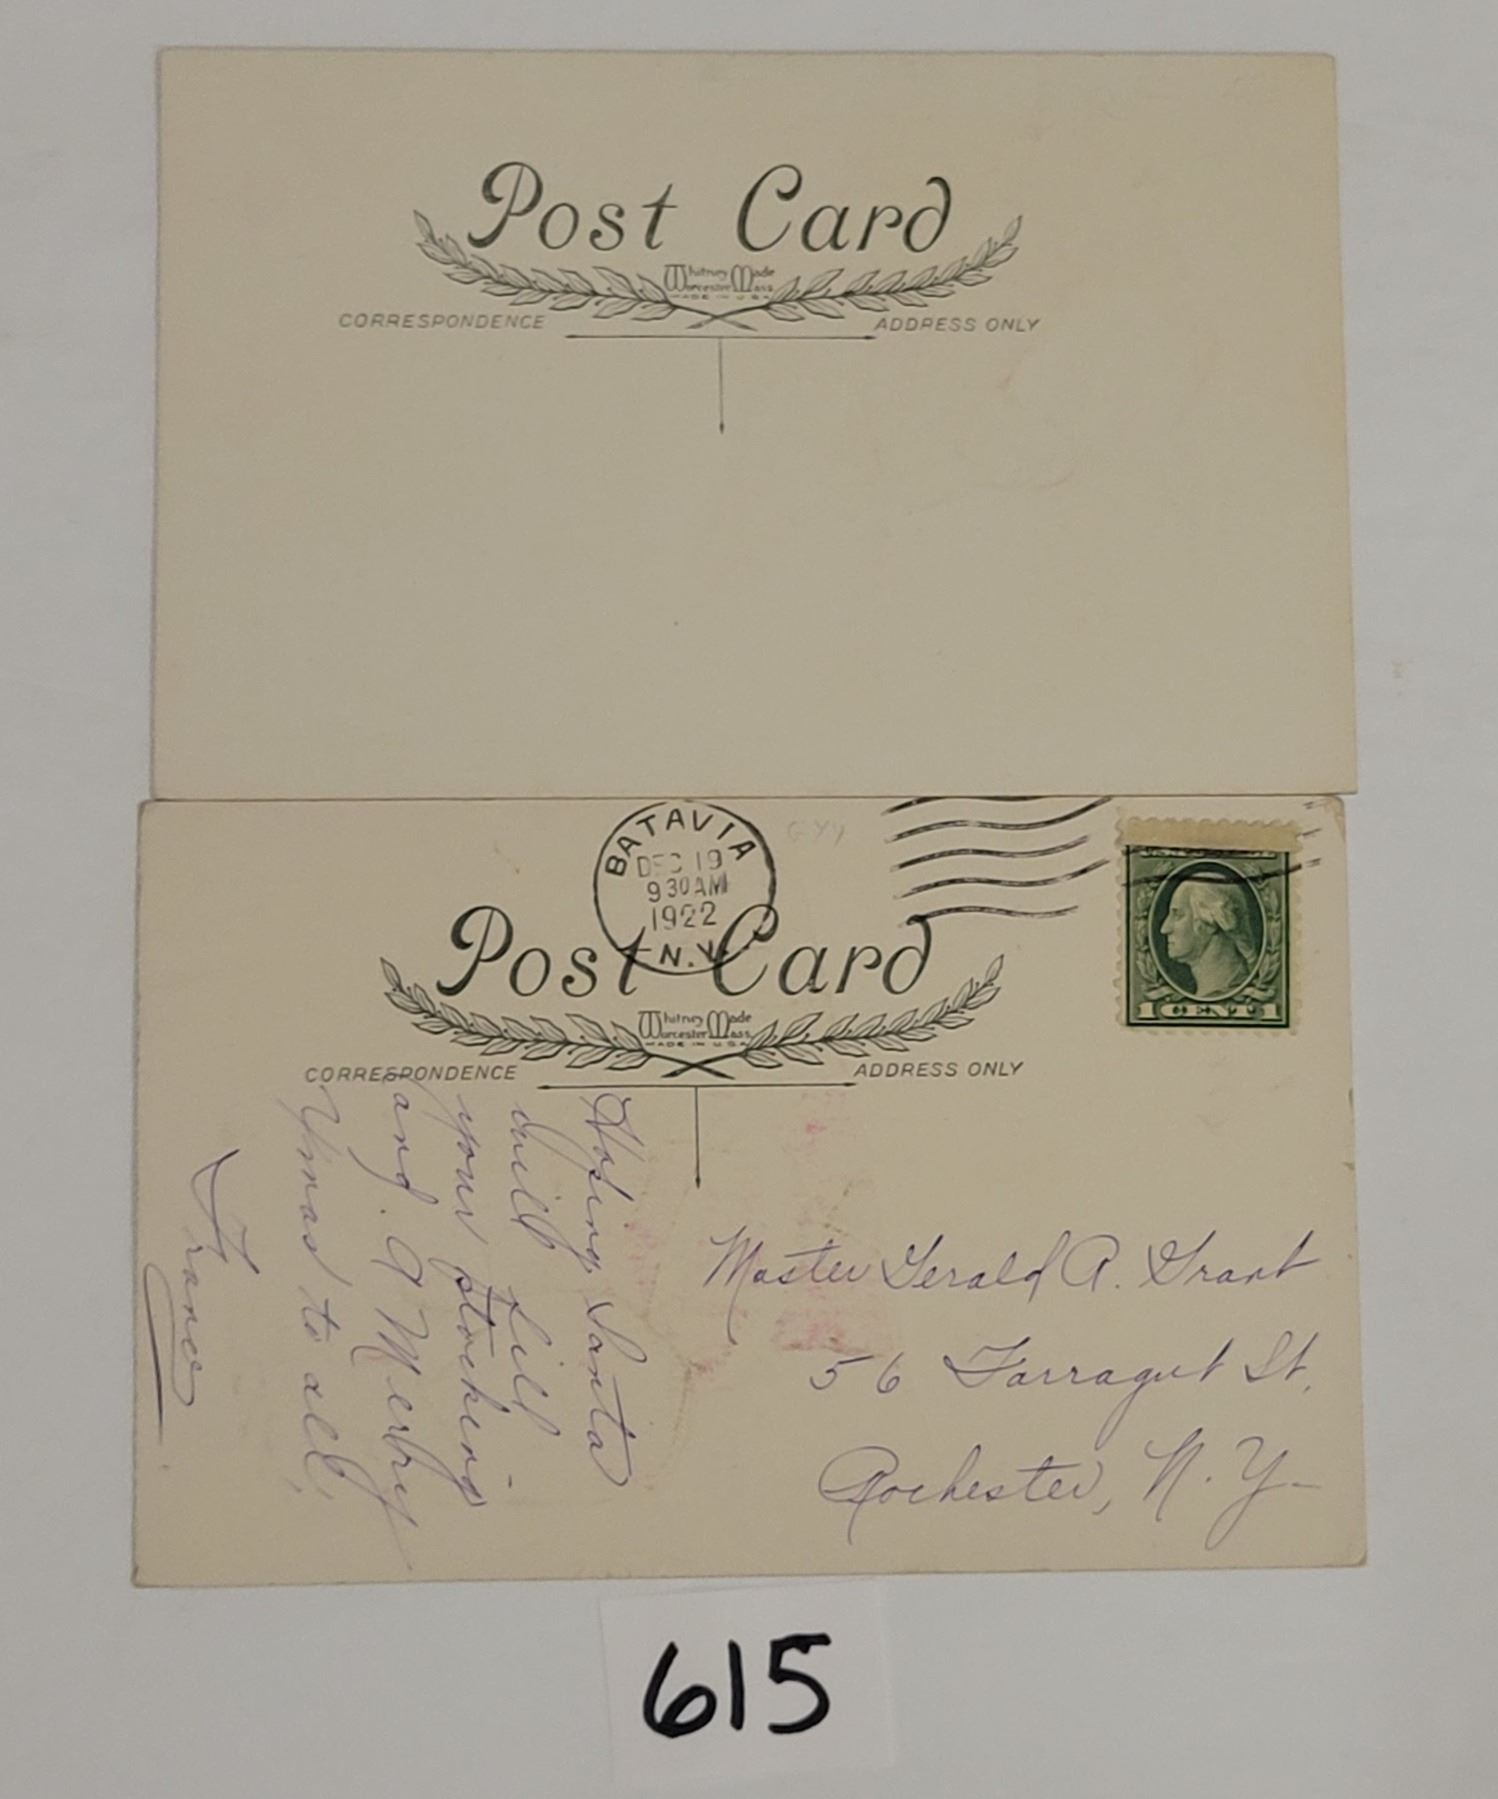 Post Card
Whitney Made
Worcester Mass
MADE IN U.S.A
CORRESPONDENCE
ADDRESS ONLY
BATAVIA
DEC 19
9 30 AM
1922
N.Y.
Post Card
Whitney Made
Worcester Mass
MADE IN U.S.A
CORRESPONDENCE
ADDRESS ONLY
1 CENT 1
Hoping Santa
will fill
your stocking
and A Merry
Xmas to all,
Frances
Master Gerald A. Grant
56 Farragut St.
Rochester, N.Y.
615